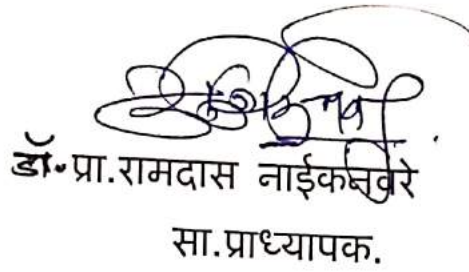 डॉ. प्रा.रामदास नाईकनवरे
सा.प्राध्यापक.